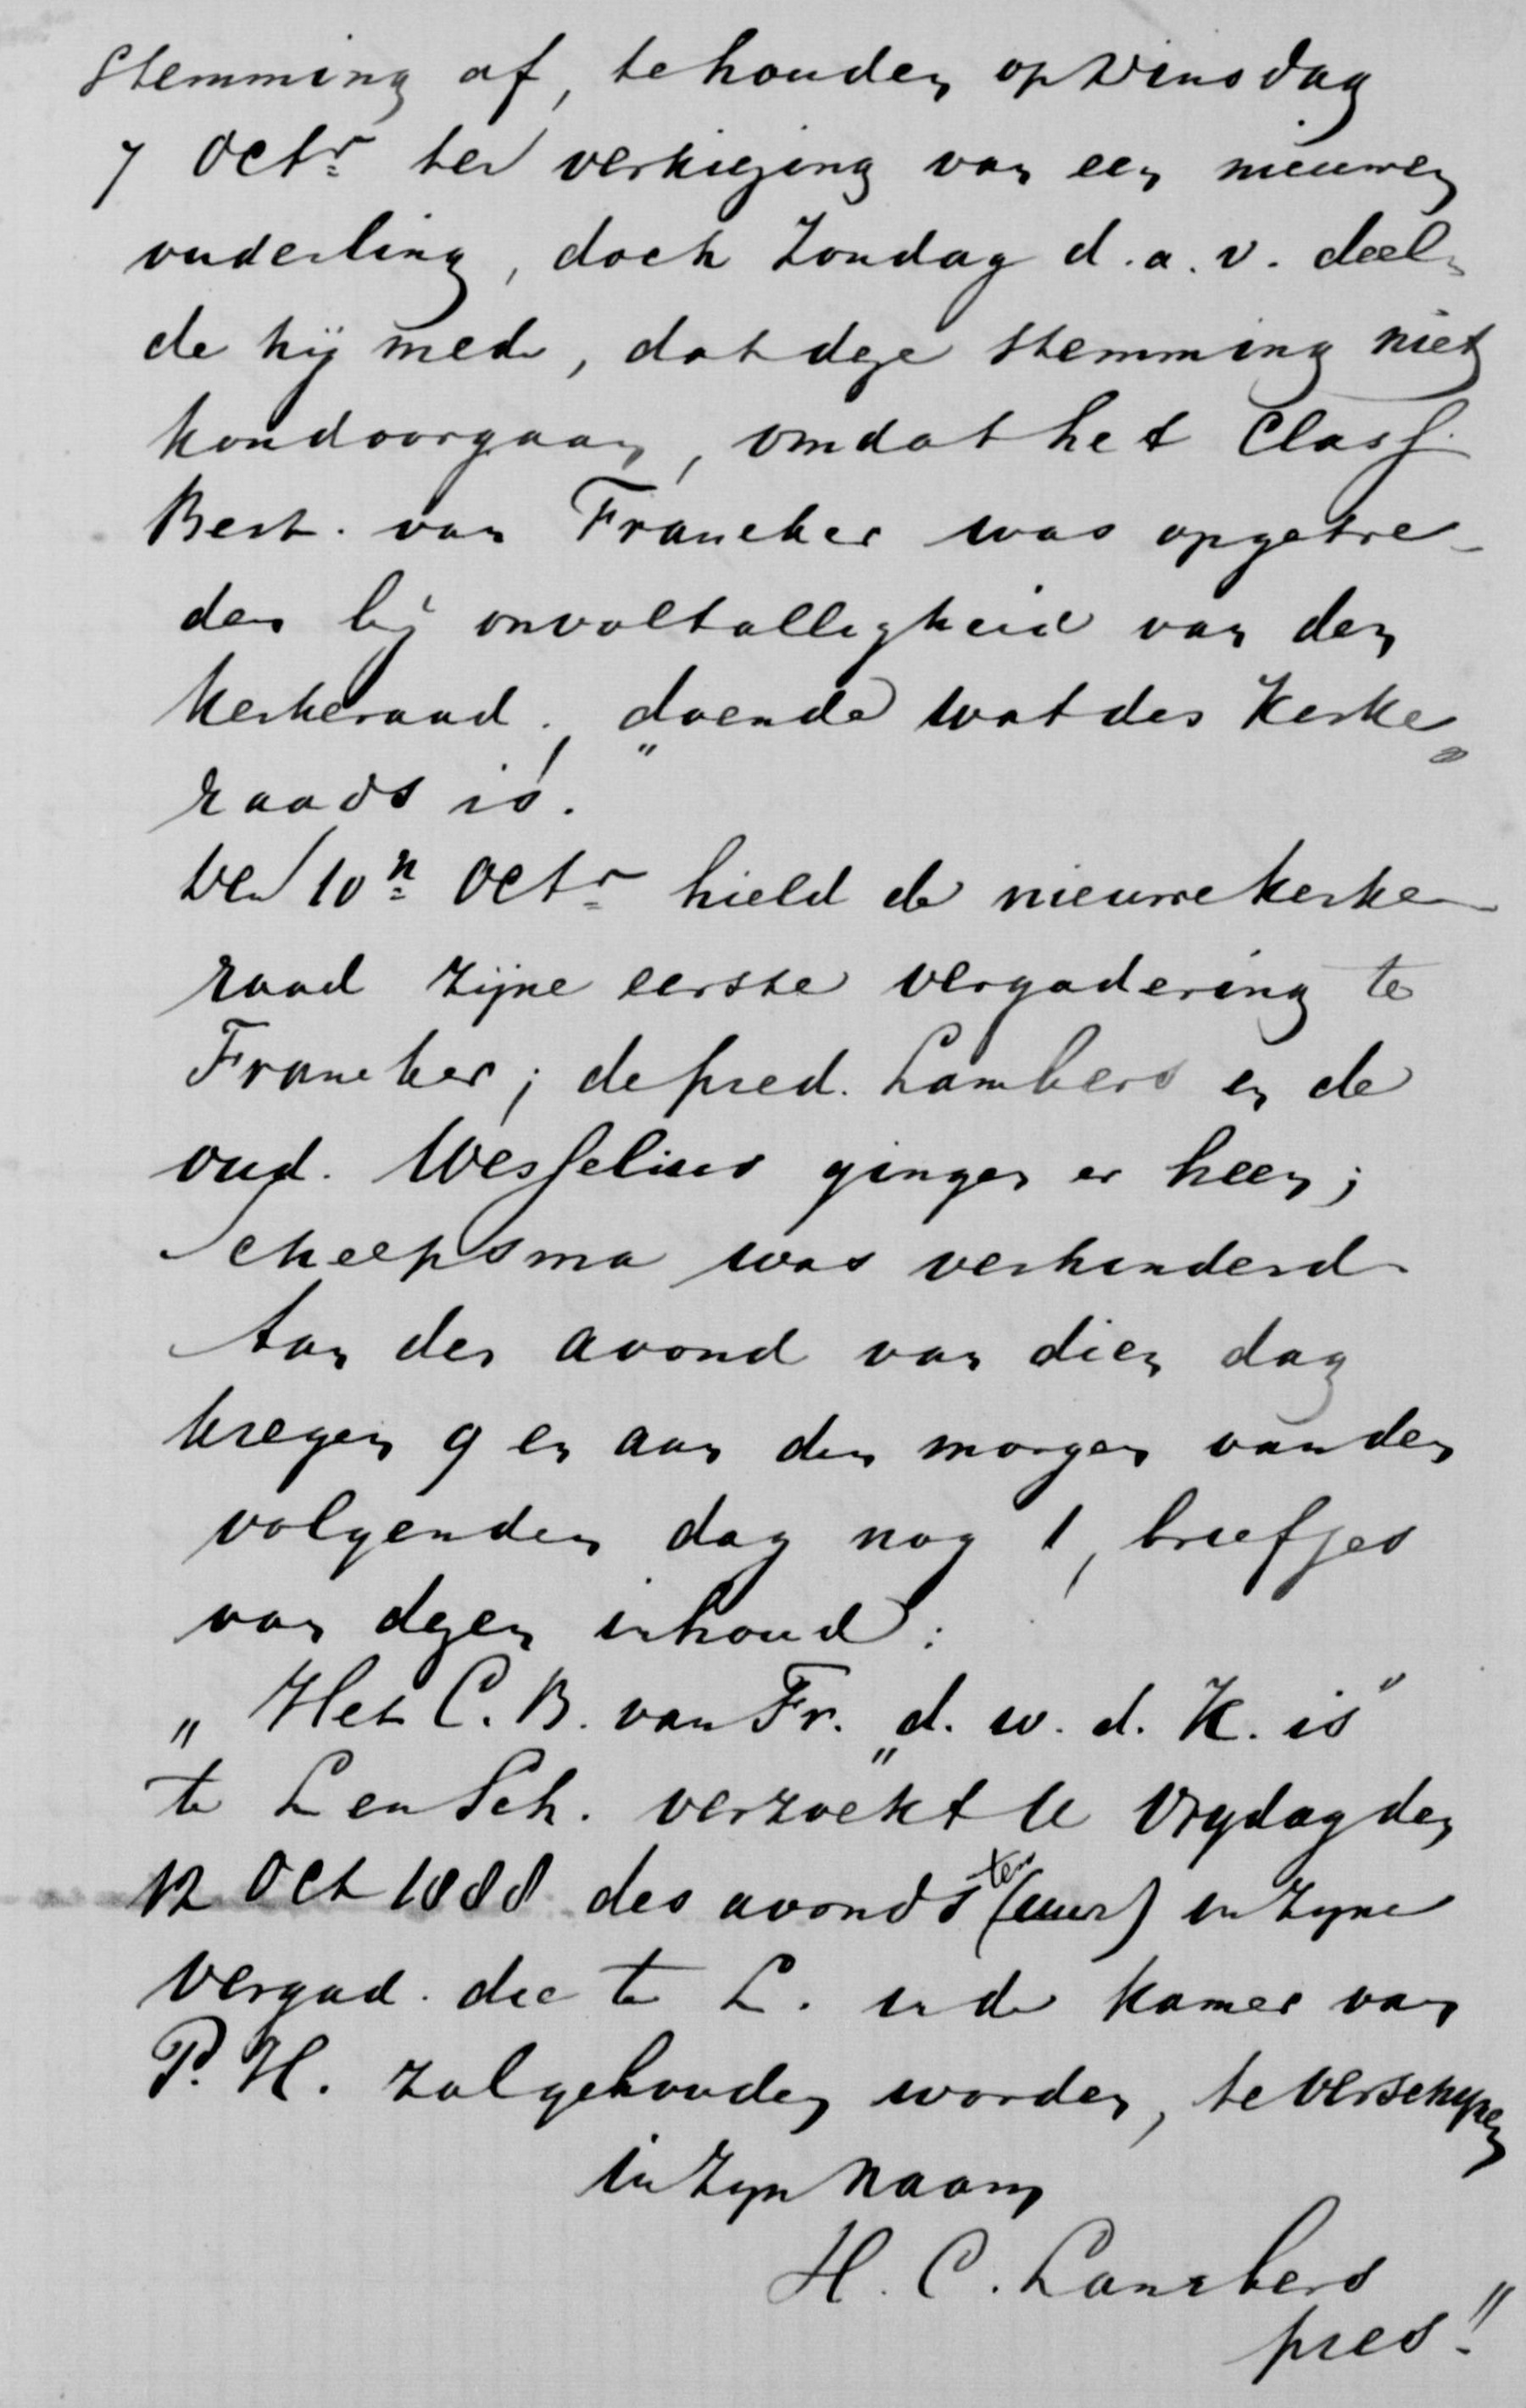 Stemming af, te houden op Dinsdag
7 Octr ter verkiezing van een nieuwen
ouderling, doch Zondag d.a.v. deel-
de hij mede, dat deze stemming niet
kon doorgaan, omdat het Class.
Best. van Franeker was opgetre-
den bij onvoltalligheid van den
kerkeraad, „doende wat des Kerke-
raads is.
Den 10n Octr hield de nieuwe kerke-
raad zijne eerste vergadering te
Franeker; de pred. Lambers en de
oud. Wesselius gingen er heen;
Scheepsma was verhinderd
Aan den avond van dien dag
kregen 9 en aan den morgen van den
volgenden dag nog 1, briefjes
van dezen inhoud:
„Het C.B. van Fr. „d.w.d.K. is"
te L en Sch. verzoekt U Vrydag den
12 Oct 1888 des avonds ten (uur) in zyne
vergad. die te L. in de kamer van
P.H. zal gehouden worden, te verschynen
in zyn naam
H.C. Lambers
pres."